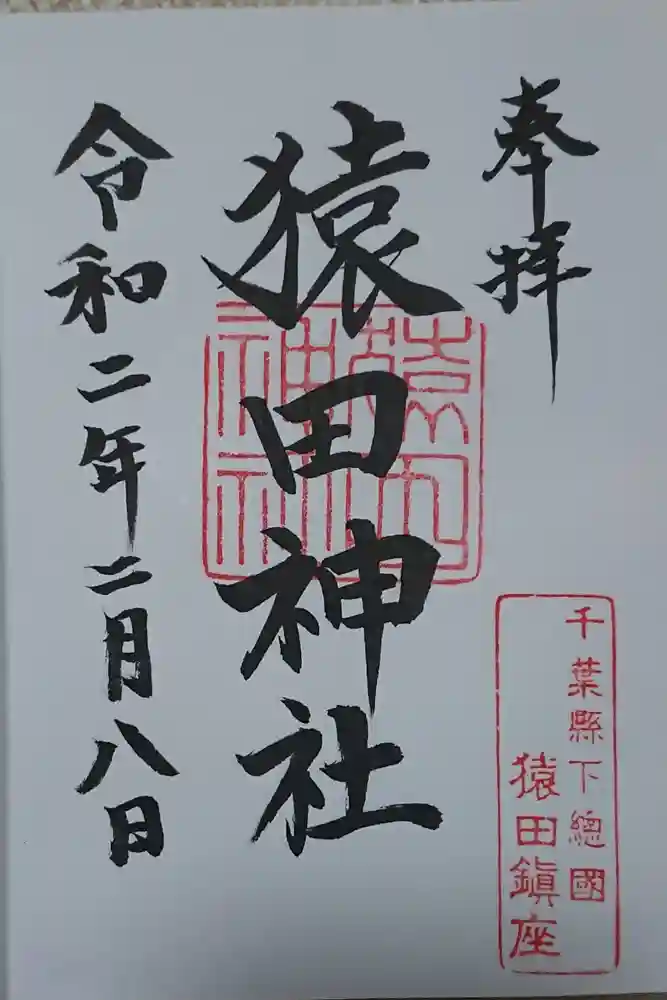 奉拝
千葉縣下總國
猿田鎮座
猿田神社
令和二年二月八日